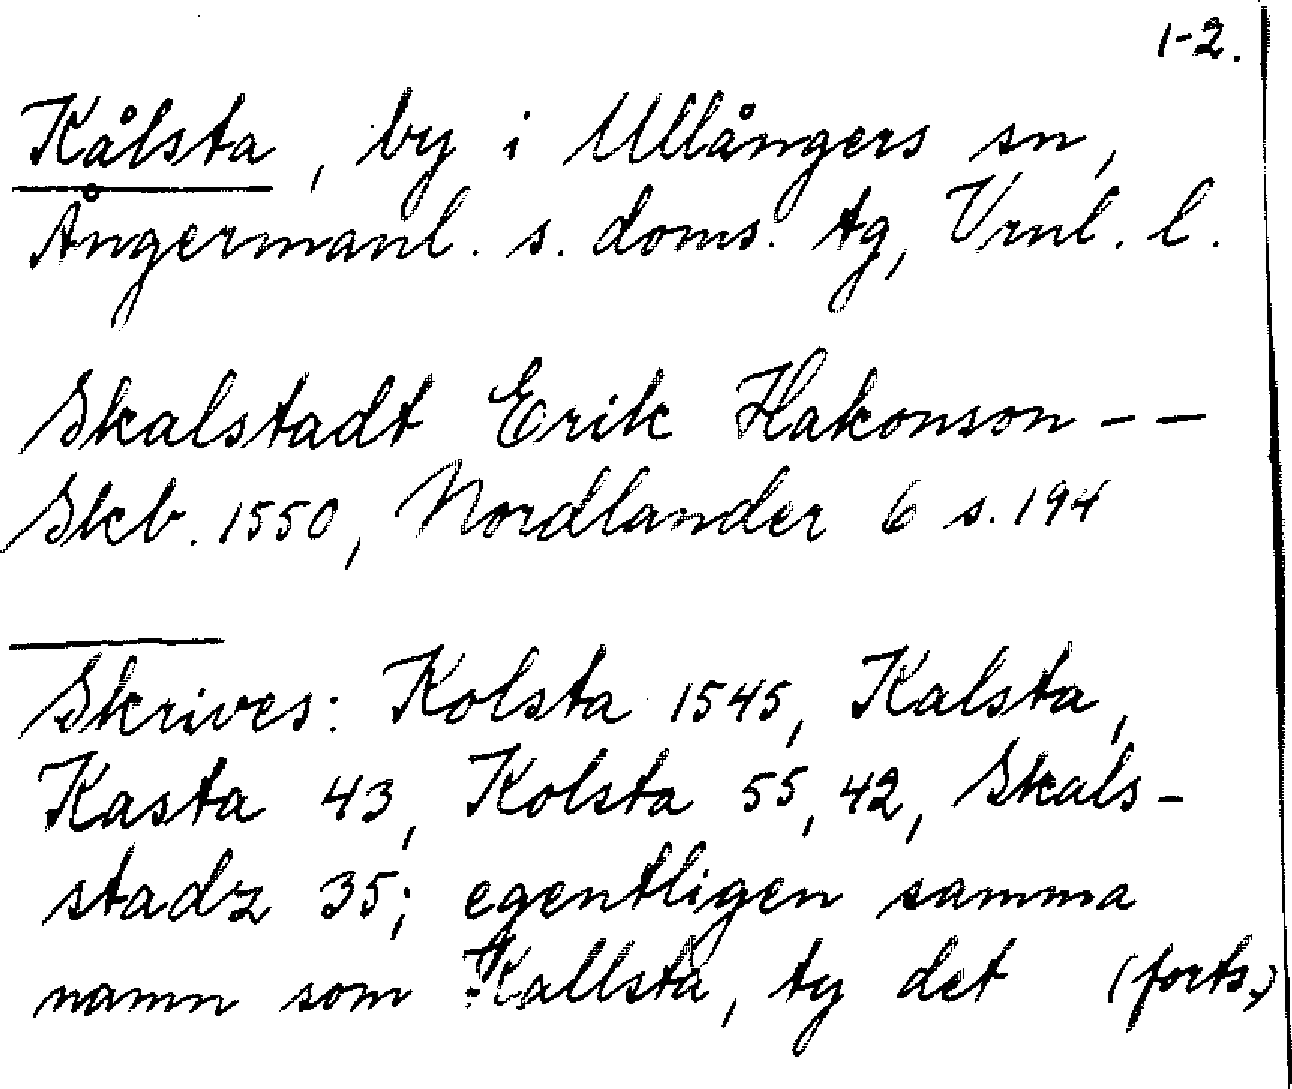 1-2.
Kålsta, by i Ullångers sn,
Ångermanl. s. doms. tg, Vrnl. l.
Skalstadt Erik Hakonson --
Skb. 1550, Nordlander 6 s. 194
Skrives: Kolsta 1545, Kalsta,
Kasta 43, Kolsta 55, 42, Skals-
stadz 35; egentligen samma
namn som Kallsta, ty det (forts.)